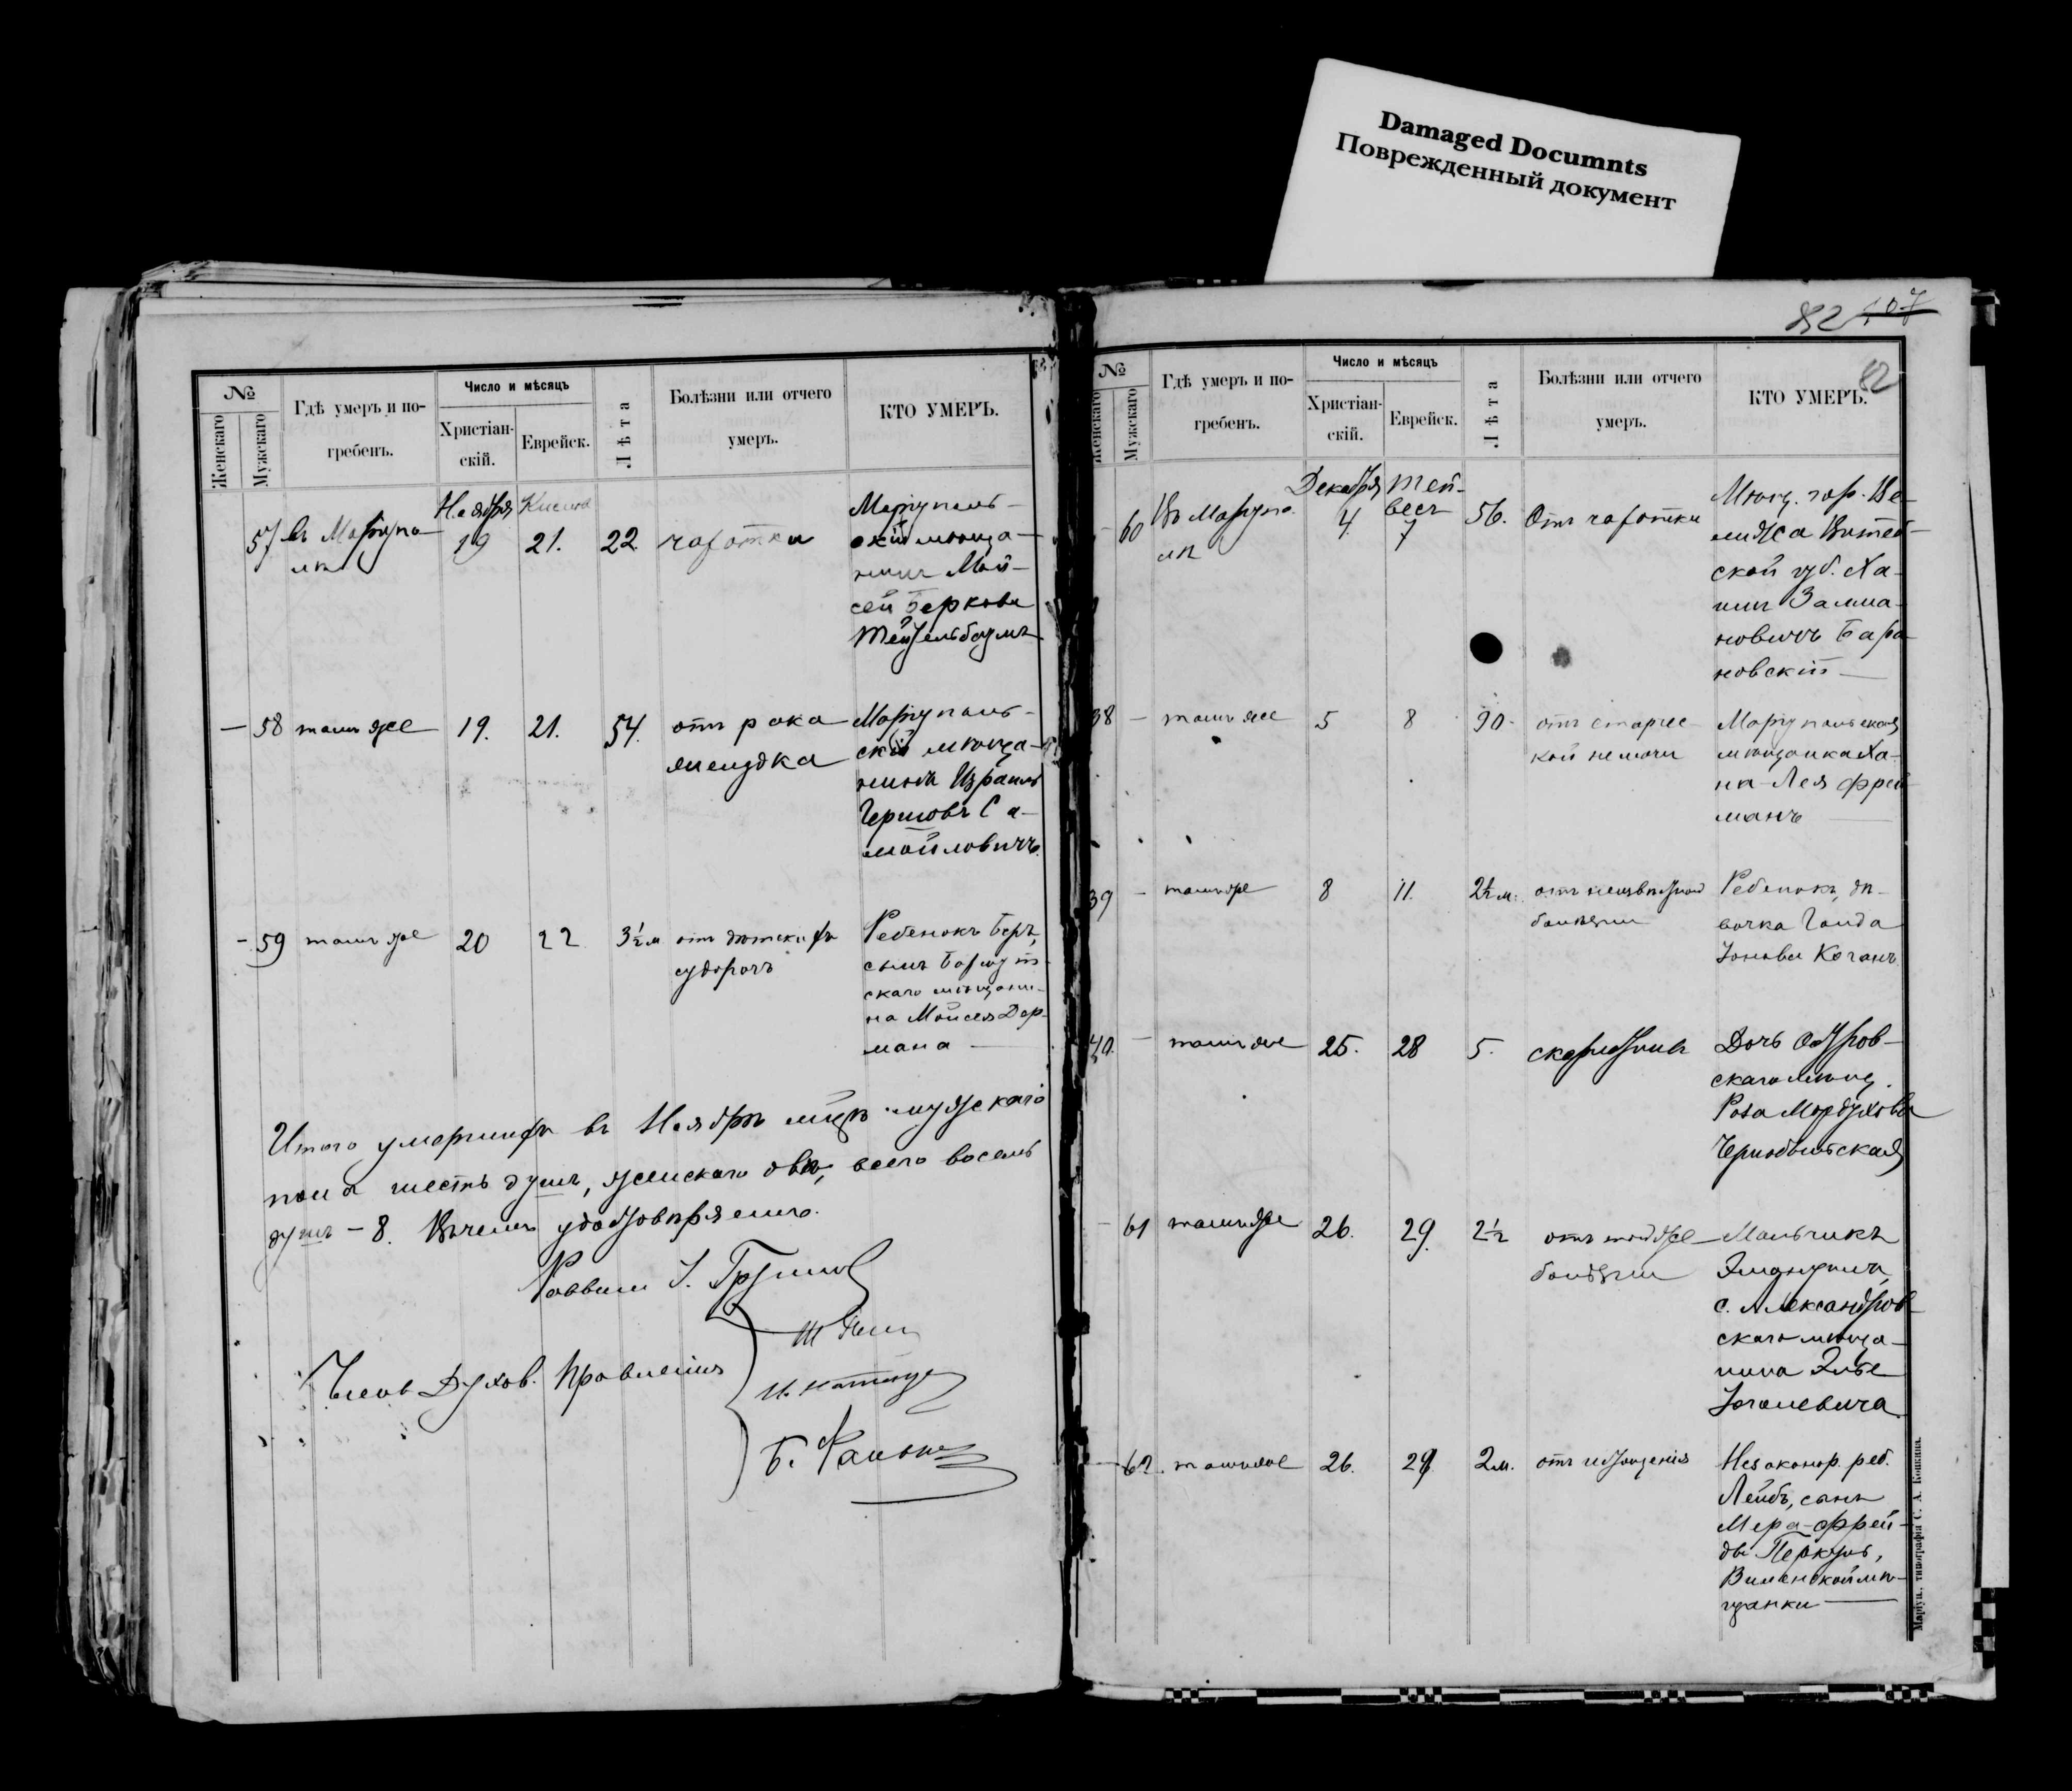 Damaged Documnts
Поврежденный документ
№
Женскаго
Мужскаго
Гдѣ умеръ и по-
гребенъ.
Число и мѣсяцъ
Христіан-
скій.
Еврейск.
Лѣта
Болѣзни или отчего
умеръ.
КТО УМЕРЪ.
Ноября
57 въ Маріупо-
лѣ
19 21. 22 чахотки
Маріуполь-
скій мѣща-
нинъ Мой-
сей Берковъ
Тейтельбаумъ
— 58 тамъ же 19. 21. 54. отъ рака
желудка
Маріуполь-
скій мѣща-
нинъ Израиль
Гершовъ Са-
мойловичъ.
- 59 тамъ же 20 22 3½ м отъ дѣтскихъ
судорогъ
Ребенокъ Беръ,
сынъ
скаго мѣщани-
на Мойсея Дер-
мана —
Итого умершихъ въ Ноябрѣ мцѣ мужскаго
пола шесть душъ, женскаго двѣ, всего восемь
душъ – 8. Въ чемъ удостовѣряемъ.
Раввинъ
Члены Духов. Правленія
82 107
82
№
Женскаго
Мужскаго
Гдѣ умеръ и по-
гребенъ.
Число и мѣсяцъ
Христіан-
скій.
Еврейск.
Лѣта
Болѣзни или отчего
умеръ.
КТО УМЕРЪ.
Декабря Тей-
весъ
- 60 Въ Маріупо-
лѣ
4. 7 56. Отъ чахотки
Мѣщ. гор. Ве-
лижа Витеб-
ской губ. Ха-
имъ Залма-
новичъ Бара-
новскій —
38 — тамъ же 5 8 90. отъ старчес-
кой немочи
Маріупольская
мѣщанка Ха-
на-Лея Фрей-
манъ —
39 — тамъ же 8 11. 2½ м. отъ неизвѣстной
болѣзни
Ребенокъ, дѣ-
вочка Голда
Іонова Коганъ
40. — тамъ же 25. 28 5. скарлатины
Дочь
скаго мѣщ.
Роза Мордухова
Чернобыльская
- 61 тамъ же 26. 29. 2½ отъ той же
болѣзни
Мальчикъ
Эмануилъ,
с. Александров-
скаго мѣща-
нина Элье
— 62. тамъ же 26. 29. 2 м. отъ истощенія
Незаконор. реб.
Лейбъ, сынъ
Мера-Фрей-
ды
Виленской мѣ-
щанки —
Маріуп. типографія С. А. Копкина.